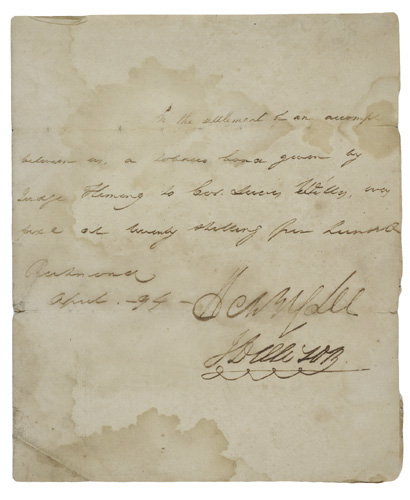 In the settlement of an accompt
between us, a tobacco bond given by
Judge Fleming to Gov. was
at twenty shilling per hundred
Richmond
April. -94 - Henry Lee